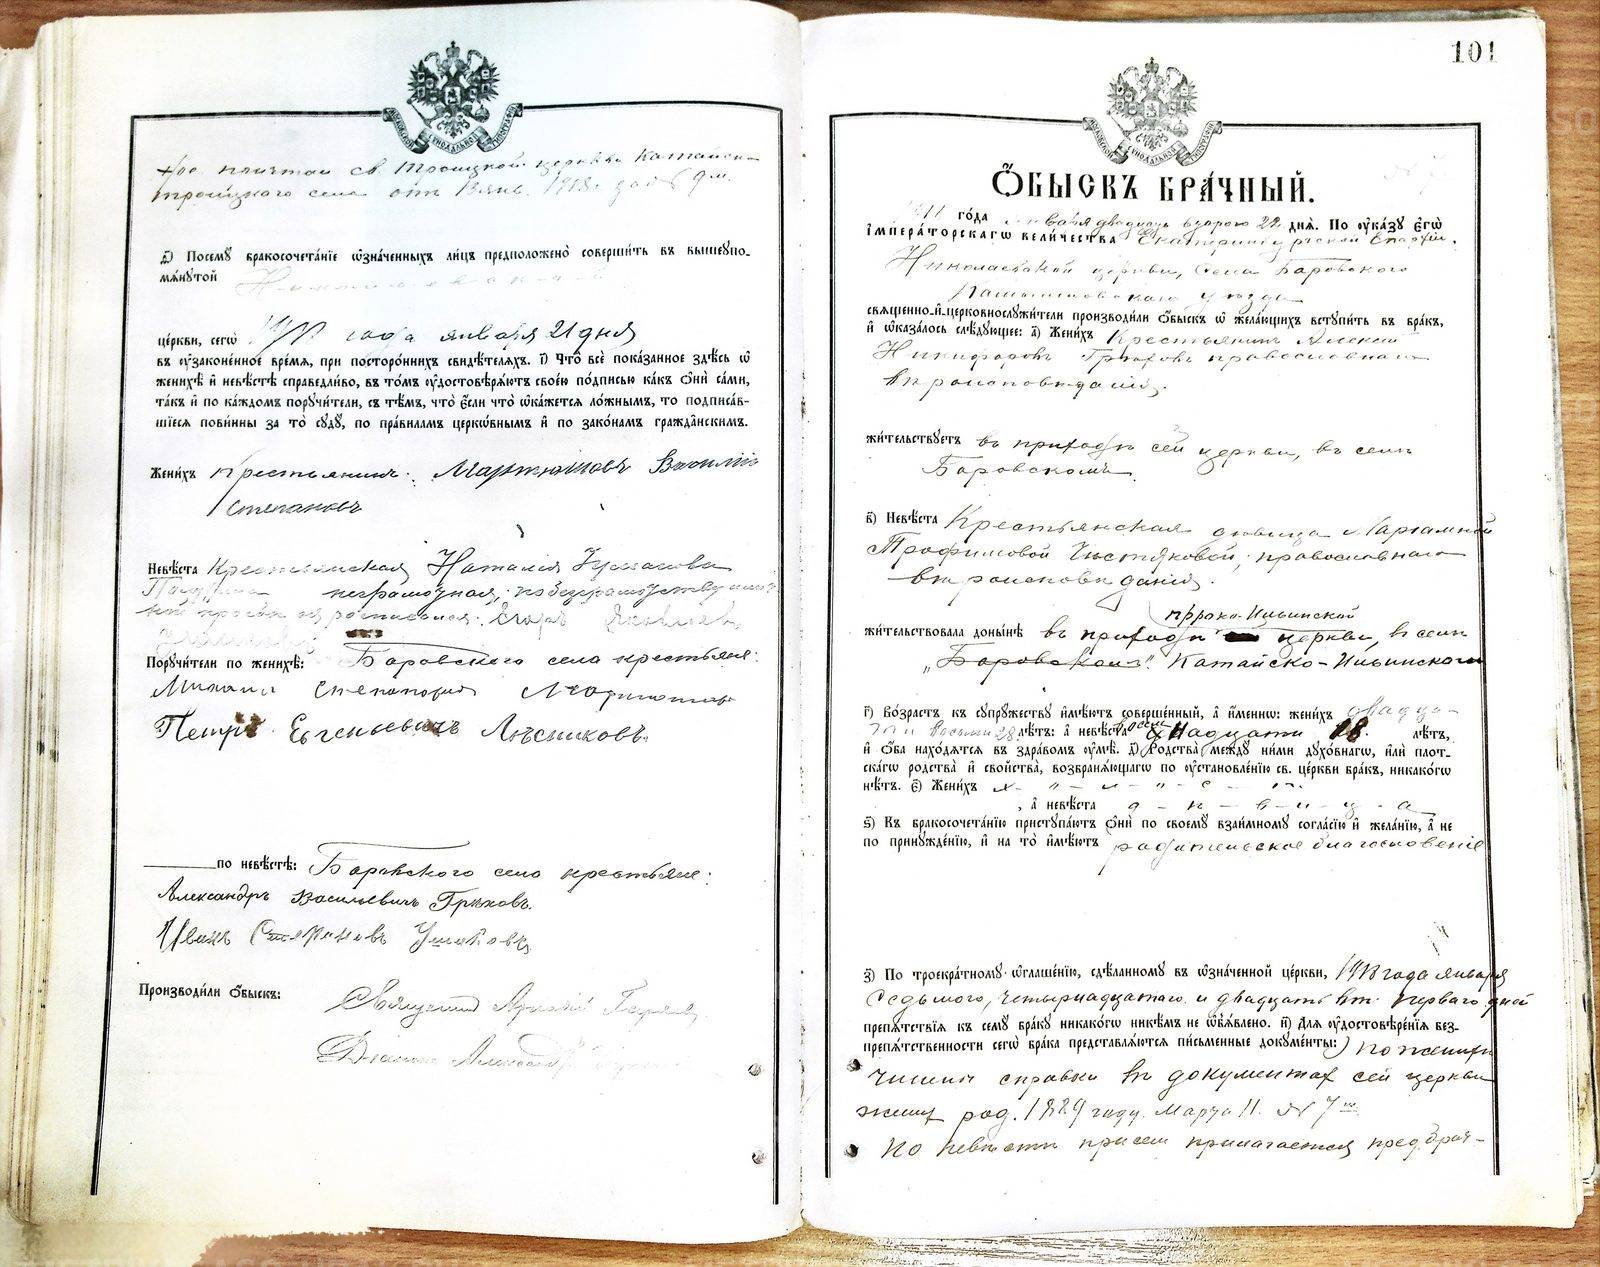 ное причтом св. Троицкой церкви Катайско-
троицкого села от 13 янв. 1918 г. за № 9 м.
Посему бракосочетанїе ѡзначенныхъ лицъ предположено совершить въ вышеупо-
мѧнутой
церкви, сегѡ года января 21 дня
въ узаконенное времѧ, при постороннихъ свидѣтелѧхъ. Что всё показанное здѣсь ѡ
женихѣ и невѣстѣ справедливо, въ томъ удостовѣрѧютъ своею подписью какъ ѻни сами,
такъ и по каждом поручители, съ тѣмъ, что если что ѡкажетсѧ ложнымъ, то подписав-
шїесѧ повинны за то суду, по правиламъ церковнымъ и по законамъ гражданскимъ.
Женихъ крестьянинъ: Мартюшовъ Василій
Степановъ
Невѣста Крестьянская Наталія
неграмотная,
росписался: Егоръ Яковлевъ
Поручители по женихѣ: Баровского села крестьяне:
Михаил Степанович
Петръ Евгеньевичъ Лѣсниковъ.
по невѣстѣ: Баровского села крестьяне:
Александръ Васильевичъ Грѣховъ.
Иванъ Степановъ Ушаковъ
Производили ѻбыскъ: Священник
Діаконъ Александръ
101
МОСКОВСКОЙ СѴНОДАЛЬНОЙ ТИПОГРАФІИ
ѺБЫСКЪ БРАЧНЫЙ.
года января двадцать второго 22 днѧ. По указу Єгѡ
Императорскагѡ величества Екатеринбургской Епархіи,
Николаевской церкви, села Баровского
Камышловского уѣзда
свѧщенно-и-церковнослужители производили ѻбыскъ ѡ желающихъ вступить въ бракъ,
и ѡказалось слѣдующее: а) Женихъ Крестьянинъ Алексій
Никифоровъ Грѣховъ православнаго
вѣроисповѣданія.
жительствуетъ въ приходѣ сей церкви, въ селѣ
Баровскомъ.
в) Невѣста Крестьянская дѣвица
Трофимовой Чистяковой, православнаго
вѣроисповѣданія.
пророко-Ильинской
жительствовала донынѣ въ приходѣ церкви, в селѣ
„Баровскомъ“ Катайско-Ильинскомъ
г) Возрастъ къ супружеству имѣютъ совершенный, а именно: женихъ двадца-
ти восьми 28 лѣтъ: а невѣста восемнадцати 18. лѣтъ,
и ѻба находѧтсѧ въ здравомъ умѣ. д) Родства между ними духовнагѡ, или плот-
скагѡ родства и свойства, возбранѧющагѡ по установленїю св. церкви бракъ, никакогѡ
нѣтъ. є) Женихъ х-о-л-о-с-т-
, а невѣста д-ѣ-в-и-ц-а
ѕ) Къ бракосочетанїю приступаютъ ѻни по своему взаимному согласїю и желанїю, а не
по принужденїю, и на то имѣютъ родительское благословеніе
з) По троекратному ѡглашенїю, сдѣланному въ ѡзначенной церкви, 1918 года января
седьмого, четырнадцатаго и двадцать перваго дней
препѧтствїѧ къ сему браку никакогѡ никѣмъ не ѡбъѧвлено. и) Длѧ удостовѣренїѧ без-
препѧтственности сегѡ брака представлѧютсѧ письменные документы: по
справки въ документах сей церкви
жених род. 1889 году. Марта 11. № 7
По невѣстѣ при сем прилагается предбрач-